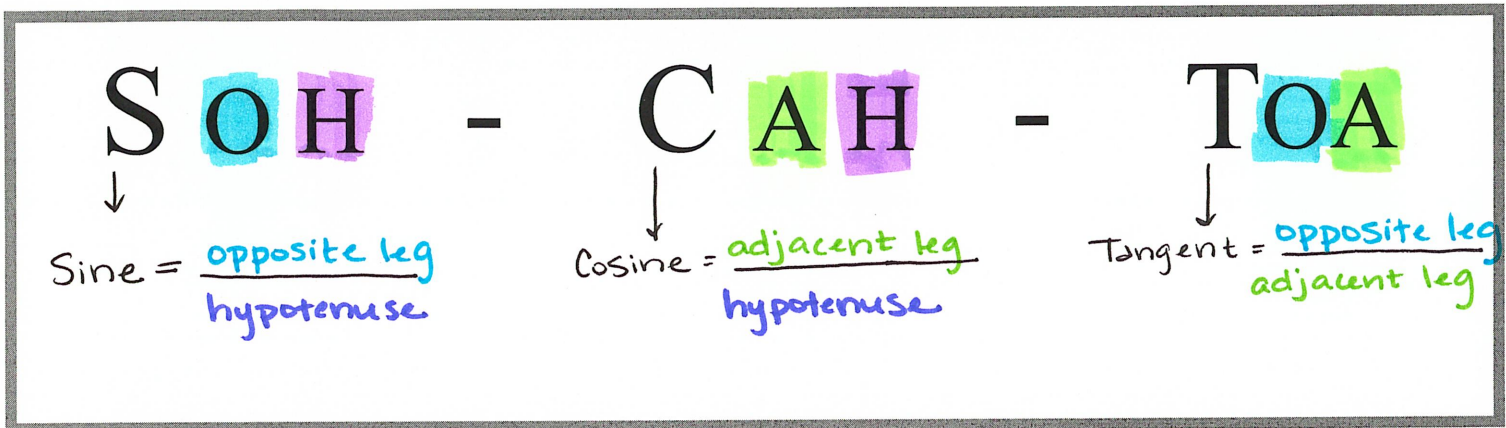 SOH - CAH - TOA
Sine = opposite leg / hypotenuse
Cosine = adjacent leg / hypotenuse
Tangent = opposite leg / adjacent leg